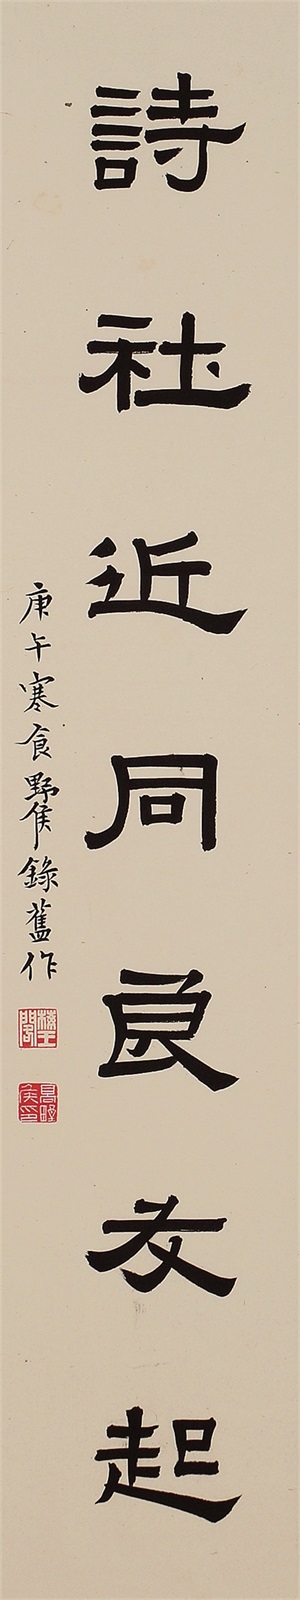 詩社近同良友起
庚午寒食野侯錄舊作
高野侯印